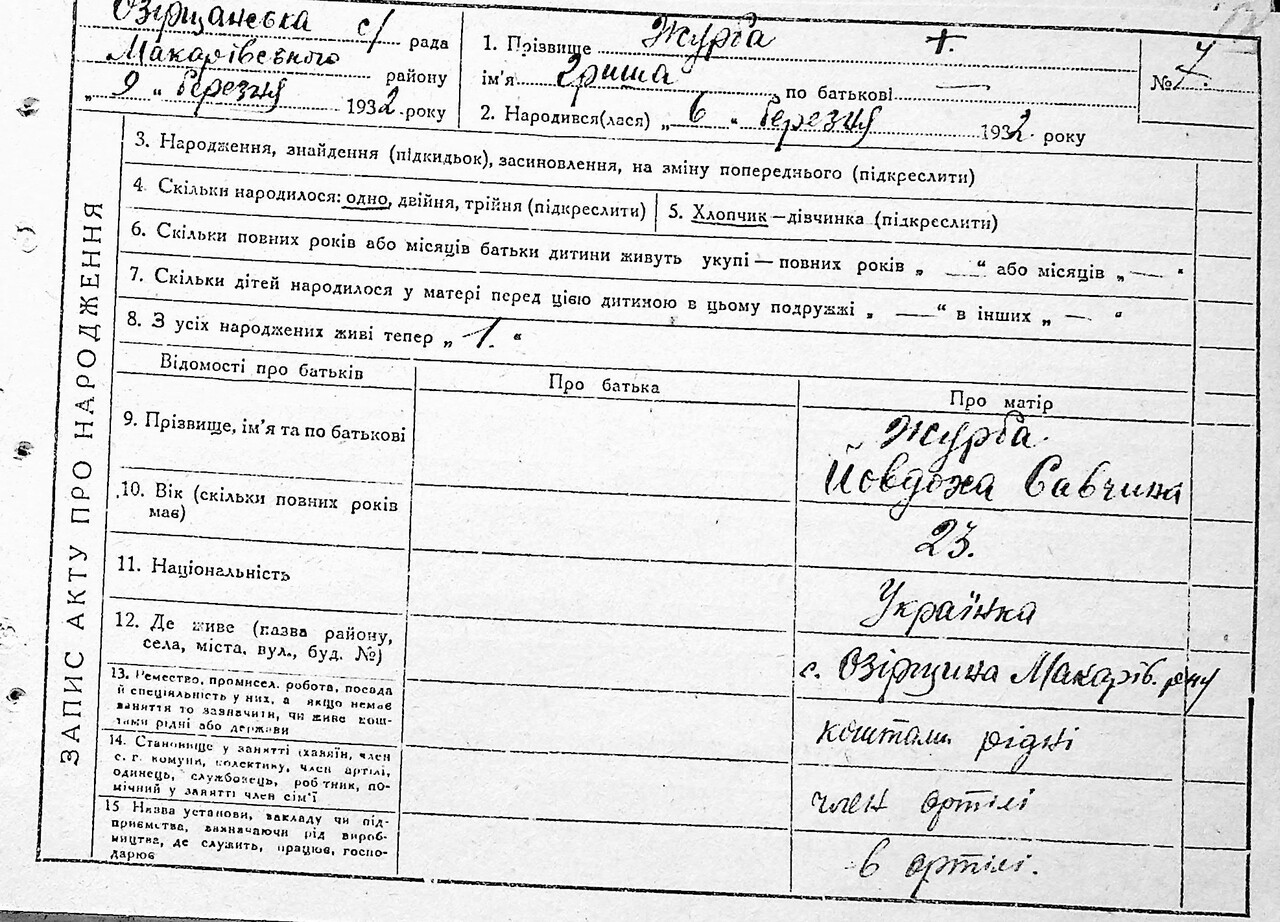 Озірщанська с/ рада
Макарівського району
„ 9 „ березня 1932 року
1. Прізвище Журба +.
ім'я Гриша по батькові —
2. Народився(лася) „ 6 „ березня 1932 року
№ 7.
ЗАПИС АКТУ ПРО НАРОДЖЕННЯ
3. Народження, знайдення (підкидьок), засиновлення, на зміну попереднього (підкреслити)
4 Скільки народилося: одно, двійня, трійня (підкреслити)
5. Хлопчик—дівчинка (підкреслити)
6. Скільки повних років або місяців батьки дитини живуть укупі — повних років „ — “ або місяців „ — “
7. Скільки дітей народилося у матері перед цією дитиною в цьому подружжі „ — “ в інших „ — “
8. З усіх народжених живі тепер „ 1. “
Відомості про батьків
Про батька
Про матір
9. Прізвище, ім'я та по батькові
Журба
Йовдоха Савчина
10. Вік (скільки повних років
має)
23.
11. Національність
Українка
12. Де живе (назва району,
села, міста, вул., буд. №)
с. Озірщина Макарів. р-ну
13. Ремество, промисел. робота, посада
й спеціяльність у них, а якщо немає
заняття то зазначити, чи живе кош-
тами рідні або держави
коштами рідні
14. Становище у занятті (хазяїн, член
с. г. комуни, колективу, член артілі,
одинець, службовець, робітник, по-
мічний у занятті член сім'ї
член артілі
15 Назва установи, закладу чи під-
приємства, визначаючи рід вироб-
ництва, де служить, працює, госпо-
дарює
в артілі.